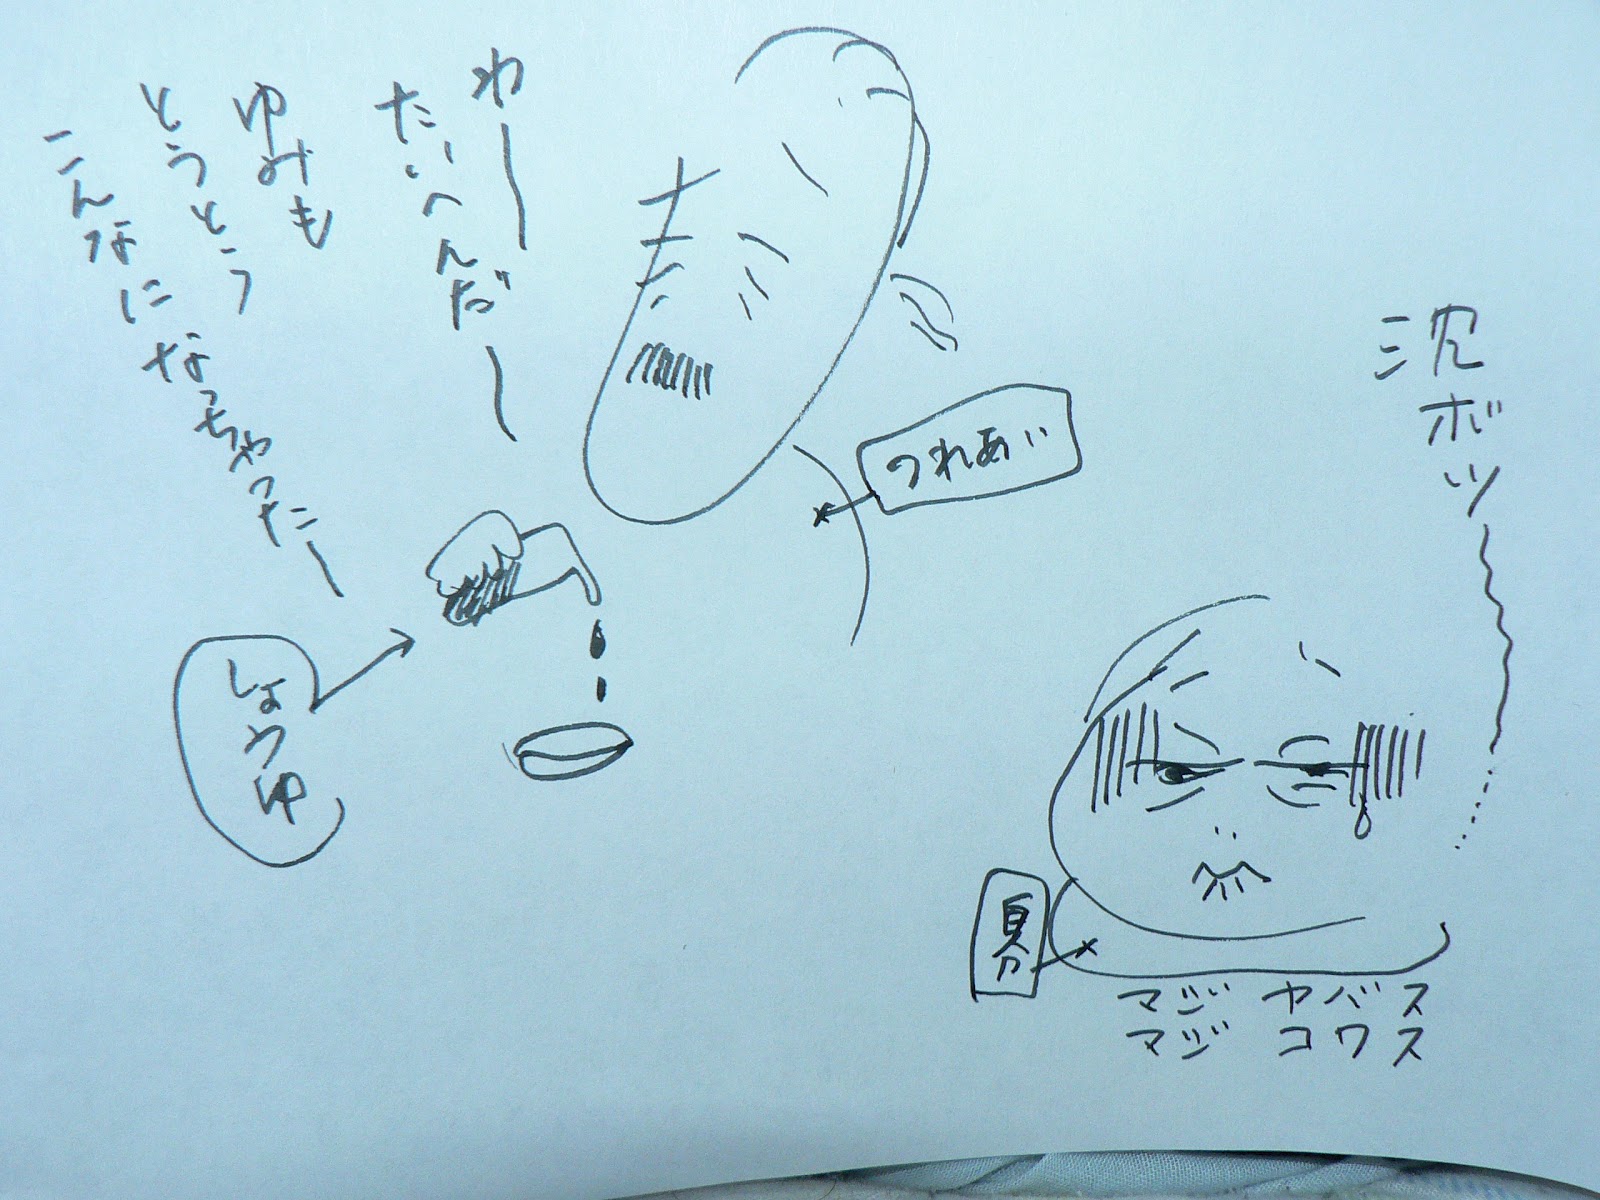 わー
たいへんだー
ゆみも
とうとう
こんなになっちゃったー
つれあい
しょうゆ
沈ボツ〜……
マジ ヤバス
マジ コワス